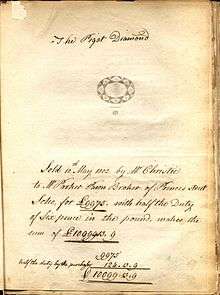 The Pigot Diamond
Sold 10th May 1802 by Mr Christie
to Mr Parker Pawn Broker of Princes Street
Soho, for £9975. with half the Duty
of Six pence in the pound makes the
sum of £10099.13.9
9975
half the duty by the purchaser 124.13.9
£10099.13.9